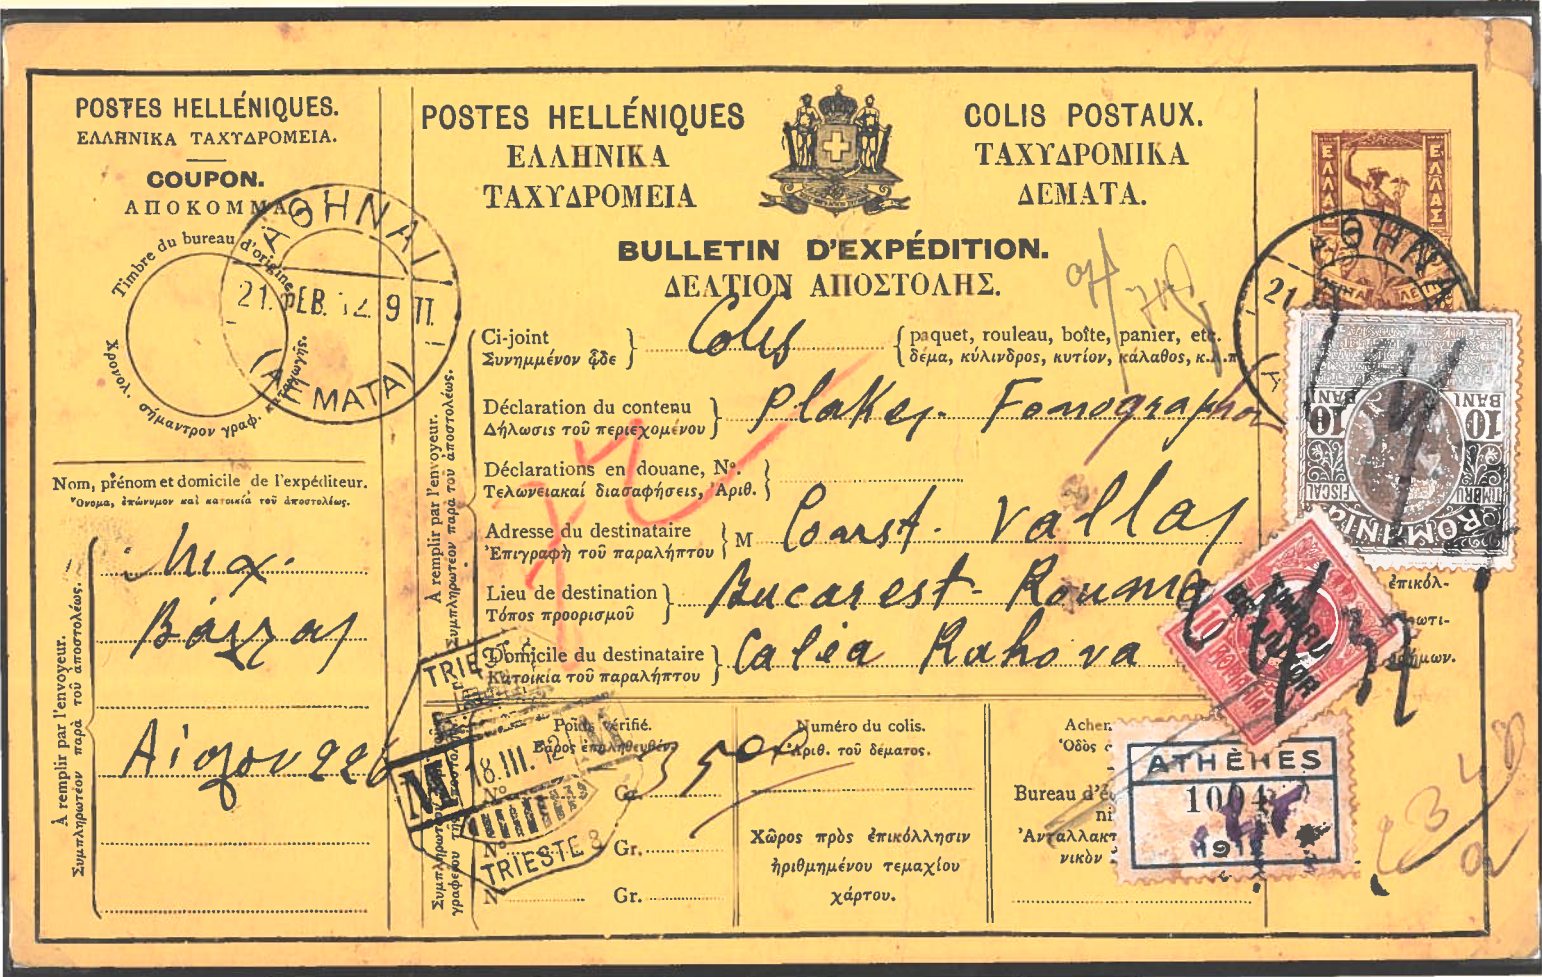 POSTES HELLÉNIQUES.
ΕΛΛΗΝΙΚΑ ΤΑΧΥΔΡΟΜΕΙΑ.
COUPON.
ΑΠΟΚΟΜΜΑ
Timbre du bureau d'origine.
Χρονολ. σήμαντρον γραφ. καταγωγῆς.
ΑΘΗΝΑΙ
21. ΦΕΒ. 12. 9 Π.
(ΔΕΜΑΤΑ)
Nom, prénom et domicile de l'expéditeur.
Ὄνομα, ἐπώνυμον καὶ κατοικία τοῦ ἀποστολέως.
À remplir par l'envoyeur.
Συμπληρωτέον παρὰ τοῦ ἀποστολέως.
Μιχ.
POSTES HELLÉNIQUES
ΕΛΛΗΝΙΚΑ
ΤΑΧΥΔΡΟΜΕΙΑ
COLIS POSTAUX.
ΤΑΧΥΔΡΟΜΙΚΑ
ΔΕΜΑΤΑ.
BULLETIN D'EXPÉDITION.
ΔΕΛΤΙΟΝ ΑΠΟΣΤΟΛΗΣ.
À remplir par l'envoyeur.
Συμπληρωτέον παρὰ τοῦ ἀποστολέως.
Ci-joint
Συνημμένον ὧδε
Colis
paquet, rouleau, boîte, panier, etc.
δέμα, κύλινδρος, κυτίον, κάλαθος, κ.λ.π
Déclaration du contenu
Δήλωσις τοῦ περιεχομένου
Plakes Fonographon
Déclarations en douane, No.
Τελωνειακαί διασαφήσεις, Ἀριθ.
Adresse du destinataire
Ἐπιγραφὴ τοῦ παραλήπτου
M Const. Vallas
Lieu de destination
Τόπος προορισμοῦ
Bucarest - Rouma
Domicile du destinataire
Κατοικία τοῦ παραλήπτου
Calea Rahova
TRIESTE 8
18.III.12
TRIESTE 8
Poids vérifié.
Βάρος ἐπαληθευθέν.
No Gr.
No Gr.
No Gr.
Numéro du colis.
Ἀριθ. τοῦ δέματος.
Χῶρος πρὸς ἐπικόλλησιν
ἠριθμημένου τεμαχίου
χάρτου.
Acher
Ὁδὸς
Bureau d'é
ni
Ἀνταλλακτ
νικὸν
ATHÈNES
1004
191
ΕΛΛΑΣ
ΕΛΛΑΣ
ΑΘΗΝΑΙ
21
10 BANI
10 BANI
TIMBRU
FISCAL
ROMANIA
10
ROMANIA
ἐπικόλ-
ωτι-